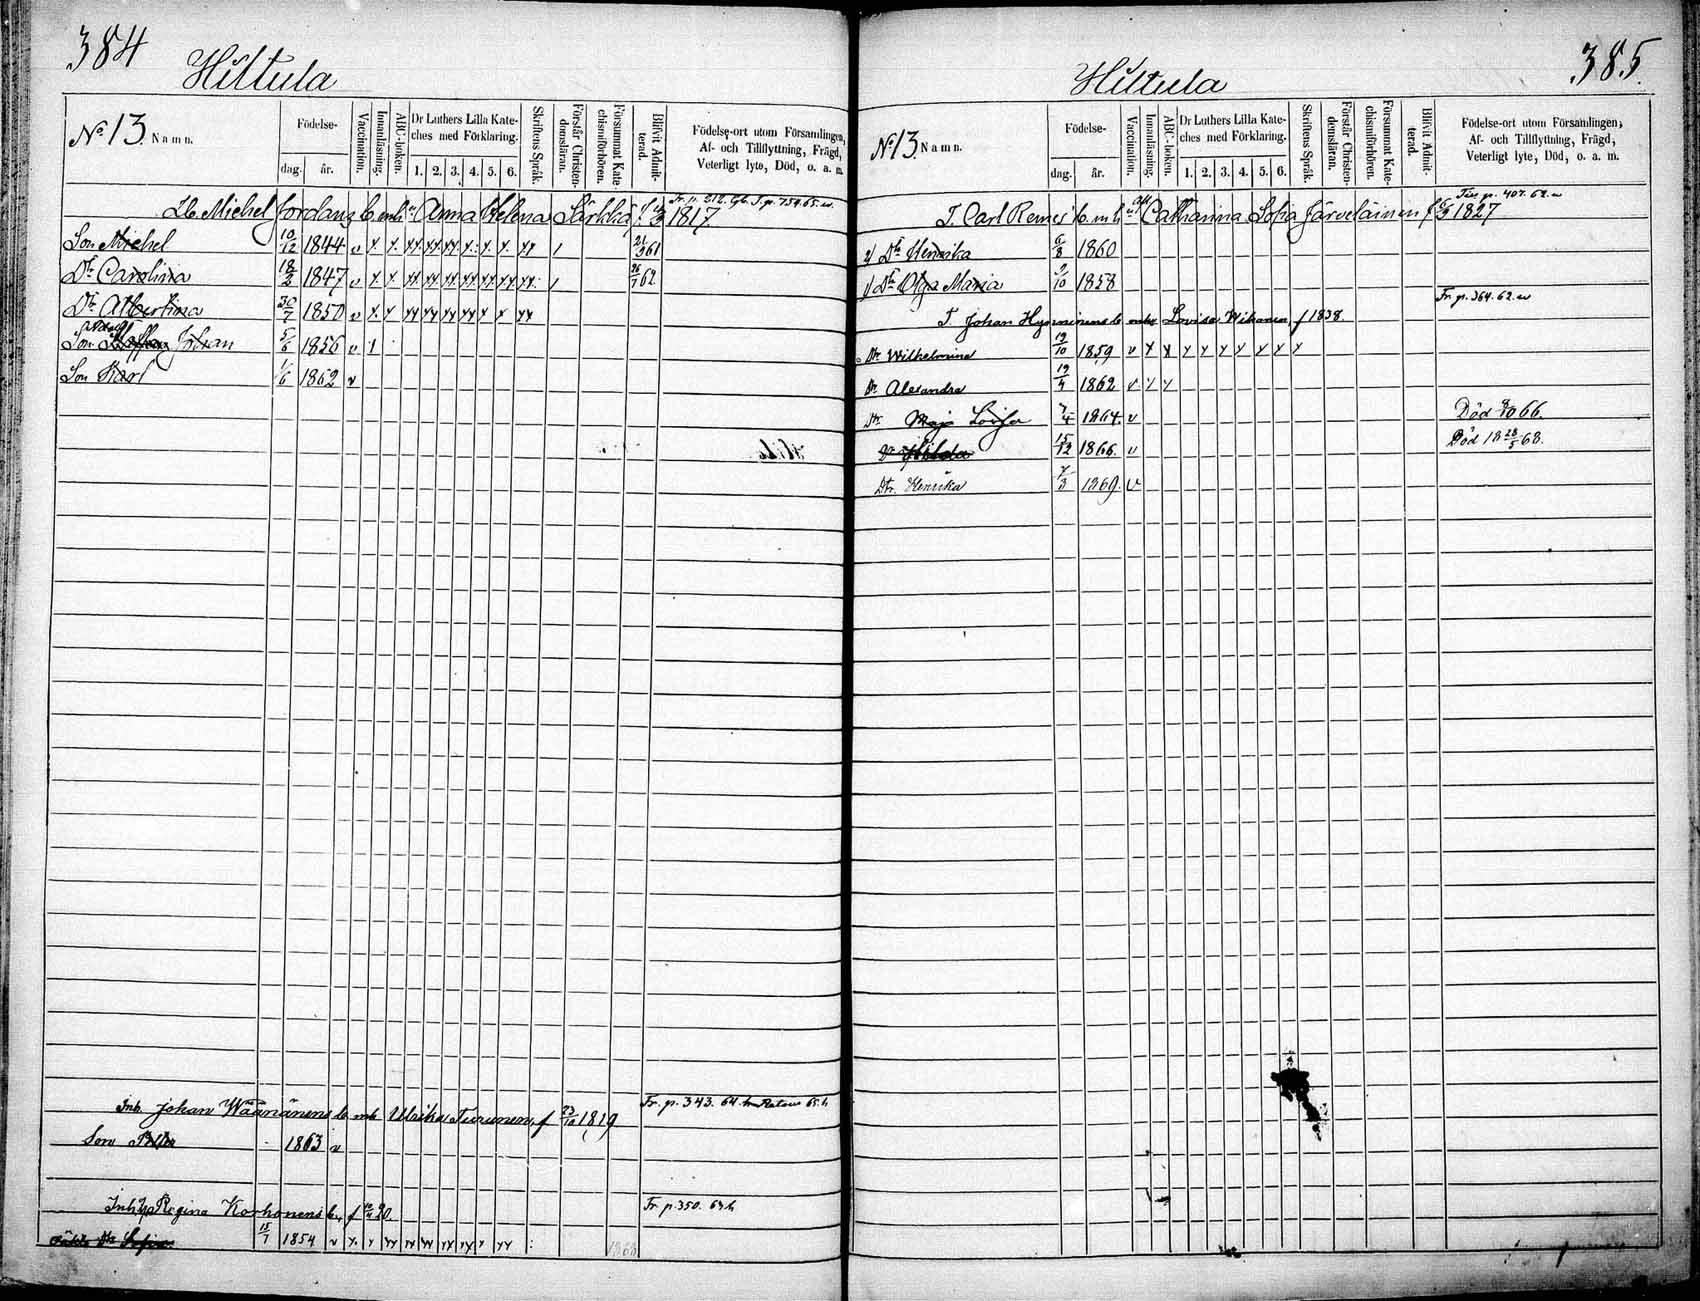 384
Hiltula
No 13. Namn.
Födelse-
dag. år.
Vaccination.
Innanläsning.
ABC-boken.
Dr Luthers Lilla Kate-
ches med Förklaring.
1. 2. 3. 4. 5. 6.
Skriftens Språk.
Förstår Christen-
domsläran.
Försummat Kate-
chismiförhören.
Blifvit Admit-
terad.
Födelse-ort utom Församlingen,
Af- och Tillflyttning, Frägd,
Veterligt lyte, Död, o. a. m.
Michel Jordans b. mh Anna Helena Särkkä, f. 1817.
Son Michel 10/12 1844 v x x xx xx xx x x x xx 1 61
Dr Carolina 18/2 1847 v x x xx xx xx xx xx xx xx 1 26/7 62
Dr Albertina 30/7 1850 v x x xx xx xx xx x x xx
Son Johan 5/6 1856 v 1
Son Karl 1/6 1862 v
Inh. Johan Wäänänens b. mh Ulrika Turunen, f 23/10 1819 Fr. p. 343. 64.
Son 1863 v
Inh. Regina Korhonens b., f 20. Fr. p. 350. 64
Dtr Sofia 15/7 1854 v x x xx xx xx xx xx x xx
385
Hiltula
No 13. Namn.
Födelse-
dag. år.
Vaccination.
Innanläsning.
ABC-boken.
Dr Luthers Lilla Kate-
ches med Förklaring.
1. 2. 3. 4. 5. 6.
Skriftens Språk.
Förstår Christen-
domsläran.
Försummat Kate-
chismiförhören.
Blifvit Admit-
terad.
Födelse-ort utom Församlingen,
Af- och Tillflyttning, Frägd,
Veterligt lyte, Död, o. a. m.
p. 407. 62.
T. Carl Remes' b. m h Catharina Sofia Järveläinen f 1827
2) Dr Henrika 6/8 1860
1) Dr Olga Maria 9/10 1858
Fr. p. 364. 62.
T. Johan Hyvärinens b. mh Lovisa Wikman, f 1838.
Dr Wilhelmina 19/10 1859 v x x x x x x x x x
Dr Alexandra 19/4 1862 v x x
Dtr Maja Lovisa 7/4 1864. v Död 66.
Dr Hilda 15/12 1866. v Död 18 28/5 68.
Dtr. Henrika 7/3 1869. v